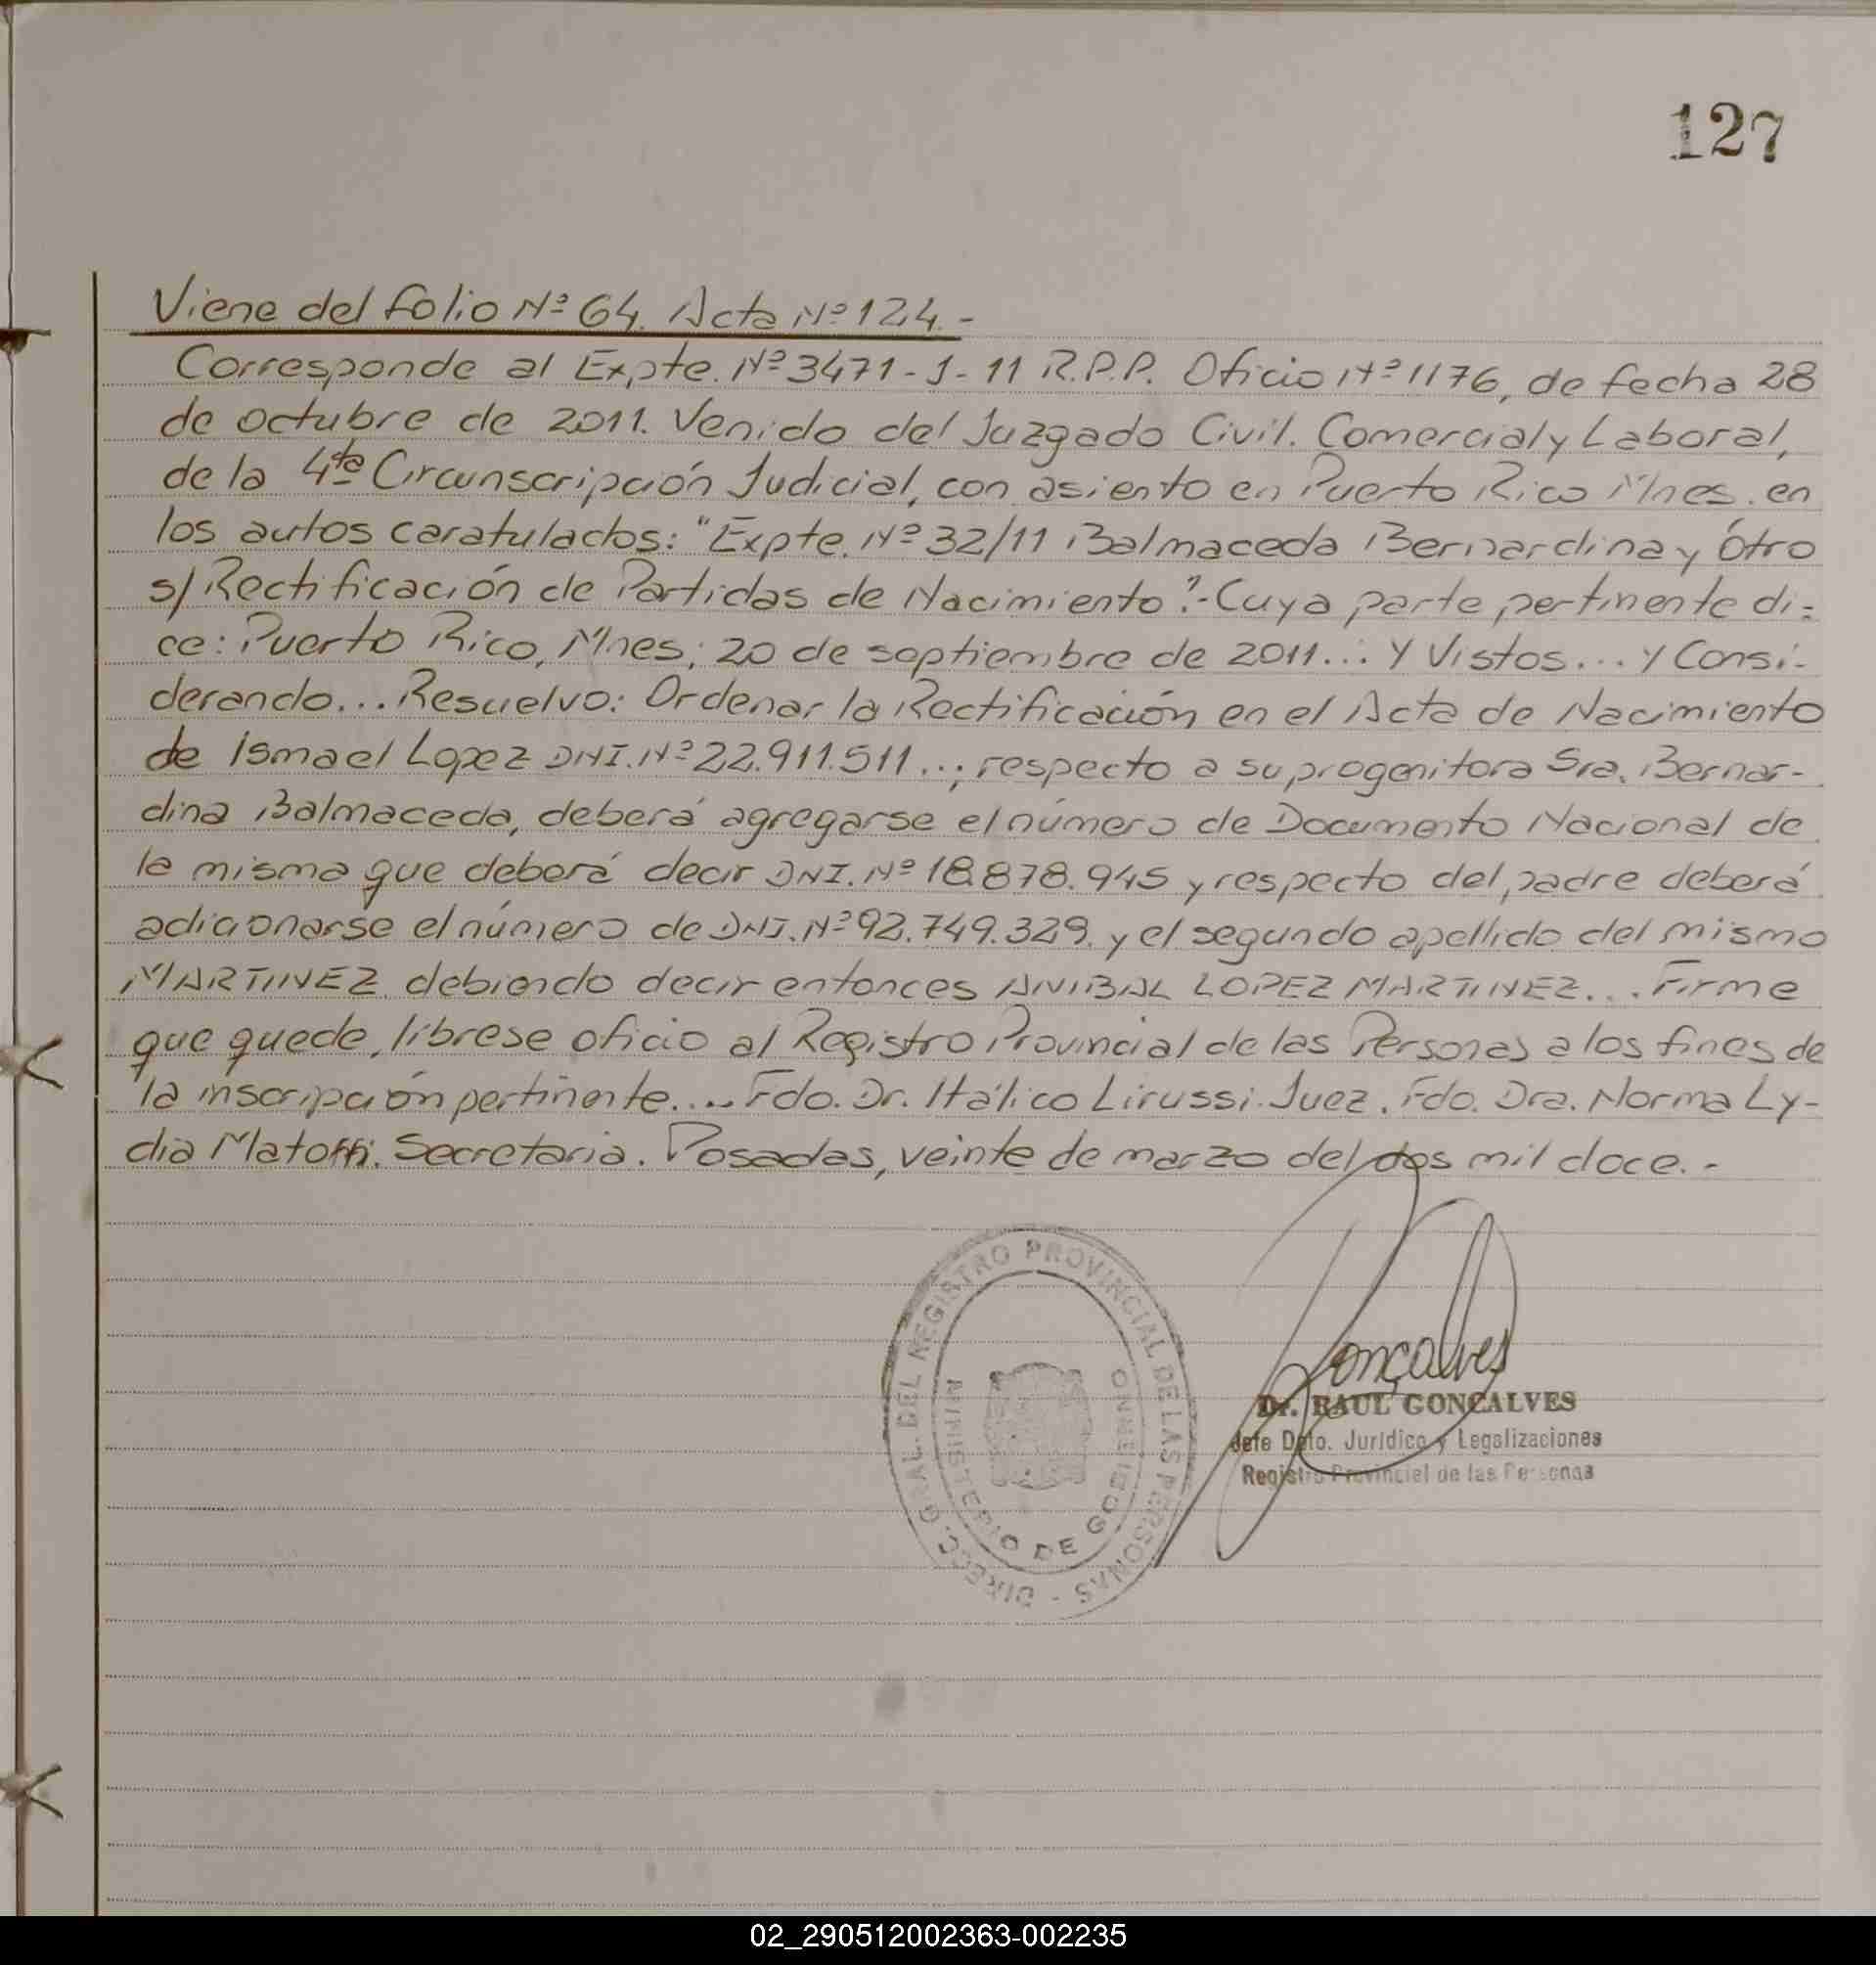 127
Viene del folio Nº 64. Acta Nº 124.-
Corresponde al Expte. Nº 3471-J-11 R.P.P. Oficio Nº 1176, de fecha 28
de octubre de 2011. Venido del Juzgado Civil. Comercial y Laboral,
de la 4ta Circunscripción Judicial, con asiento en Puerto Rico Mnes. en
los autos caratulados: "Expte. Nº 32/11 Balmaceda Bernardina y Otro
s/ Rectificación de Partidas de Nacimiento".- Cuya parte pertinente di-
ce: Puerto Rico, Mnes; 20 de septiembre de 2011... Y Vistos... y Consi-
derando... Resuelvo: Ordenar la Rectificación en el Acta de Nacimiento
de Ismael Lopez DNI. Nº 22.911.511...; respecto a su progenitora Sra. Bernar-
dina Balmaceda, deberá agregarse el número de Documento Nacional de
la misma que deberá decir DNI. Nº 18.878.945 y respecto del padre deberá
adicionarse el número de DNI. Nº 92.749.329. y el segundo apellido del mismo
MARTINEZ debiendo decir entonces ANIBAL LOPEZ MARTINEZ... Firme
que quede, líbrese oficio al Registro Provincial de las Personas a los fines de
la inscripción pertinente.... Fdo. Dr. Itálico Lirussi. Juez. Fdo. Dra. Norma Ly-
dia Matoffi. Secretaria. Posadas, veinte de marzo del dos mil doce.-
DIRECC. GRAL. DEL REGISTRO PROVINCIAL DE LAS PERSONAS -
MINISTERIO DE GOBIERNO
Gonçalves
Dr. RAUL GONÇALVES
Jefe Dpto. Jurídico y Legalizaciones
Registro Provincial de las Personas
02_290512002363-002235